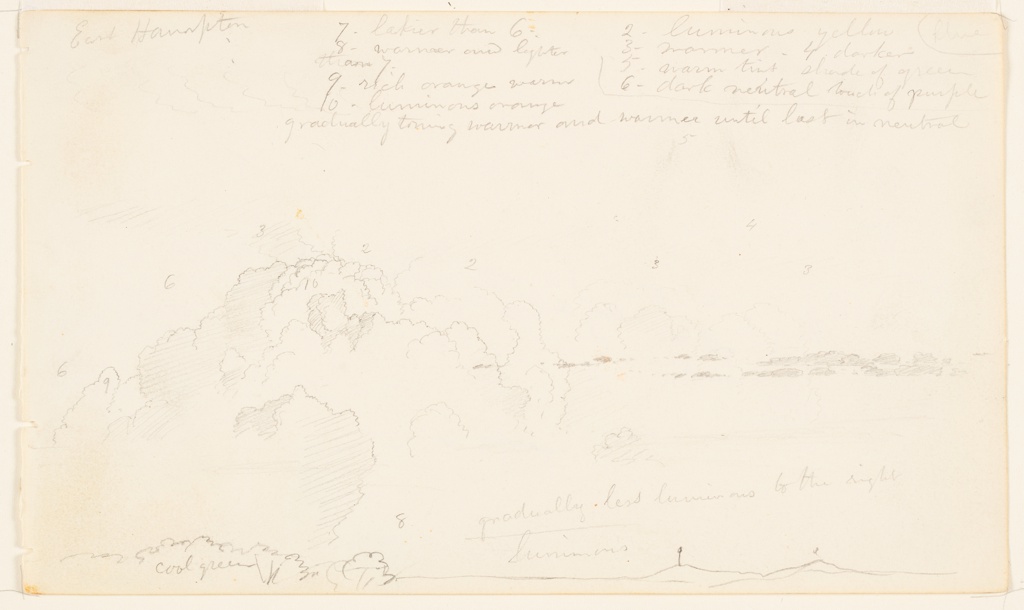 East Hampton
7- lakier than 6-
8- warmer and lighter
than 7
9- rich orange warm
10- luminous orange
2- luminous yellow
3- warmer - 4 darker
5- warm tint shade of green
6- dark neutral touch of purple
gradually toning warmer and warmer until last in neutral
5
3 2 4
6 10 2 3 3
6 9
8
gradually less luminous to the right
luminous
cool green